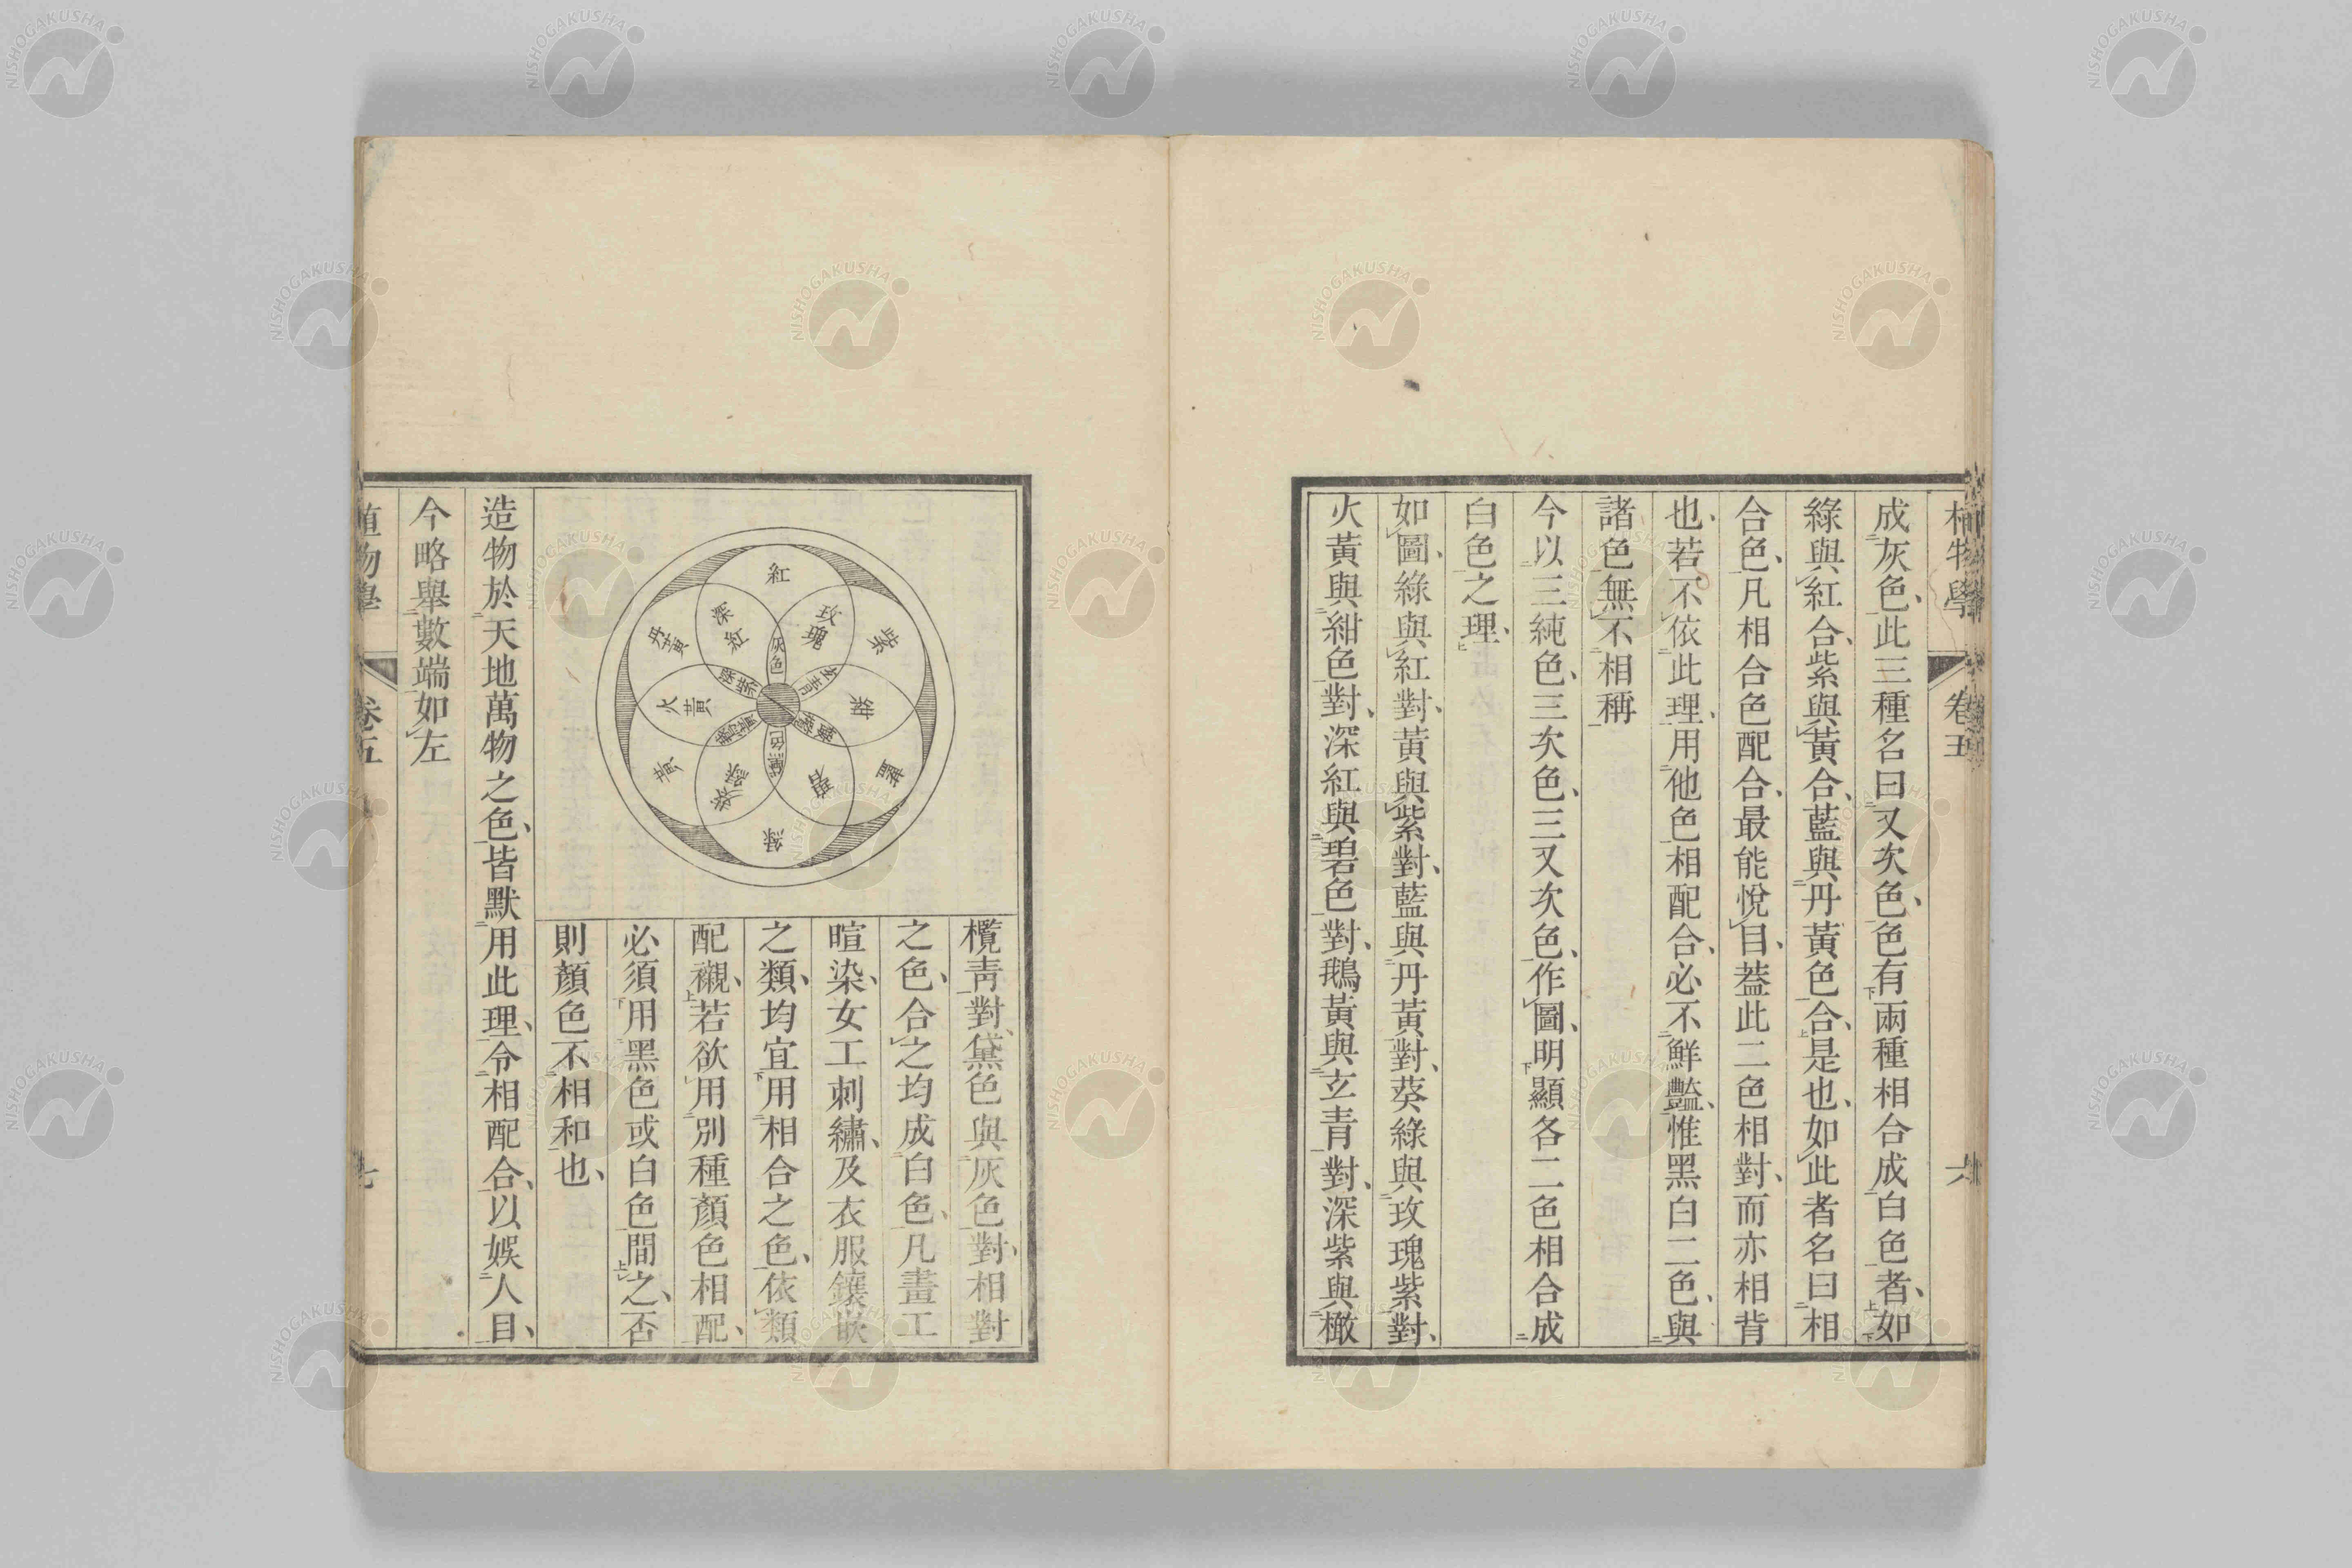 植物學 卷五 六
成灰色、此三種名曰又次色、色有兩種相合成白色者、如
綠與紅合、紫與黃合、藍與丹黃色合、是也、如此者名曰相
合色、凡相合色配合、最能悅目、蓋此二色相對、而亦相背
也、若不依此理、用他色相配合、必不鮮豔、惟黑白二色、與
諸色無不相稱
今以三純色、三次色、三又次色、作圖、明顯各二色相合成
白色之理、
如圖、綠與紅對、黃與紫對、藍與丹黃對、葵綠與玫瑰紫對、
火黃與紺色對、深紅與碧色對、鵝黃與玄青對、深紫與橄
欖青對、黛色與灰色對、相對
之色、合之均成白色、凡畫工
暄染、女工刺繡、及衣服鑲嵌
之類、均宜用相合之色、依類
配襯、若欲用別種顏色相配、
必須用黑色或白色間之、否
則顏色不相和也、
紅
玫瑰
紫
紺
藍
碧
綠
葵綠
黃
火黃
丹黃
深紅
灰色
玄青
黛色
鵝黃
深紫
造物於天地萬物之色、皆默用此理、令相配合、以娛人目、
今略舉數端如左
植物學 卷五 七
NISHOGAKUSHA